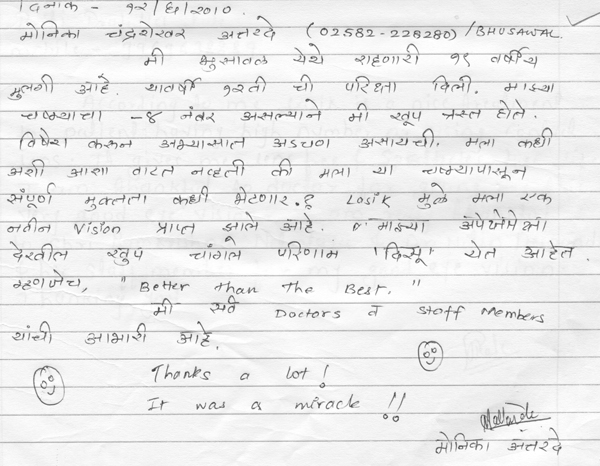 दिनांक - १२/६/२०१०.
मोनिका चंद्रशेखर अत्तरदे (02582-228280)/BHUSAWAL.
मी भुसावळ येथे राहणारी १९ वर्षीय
मुलगी आहे. यावर्षी १२वी ची परिक्षा दिली. माझ्या
चष्म्याचा -४ नंबर असल्याने मी खूप त्रस्त होते.
विशेष करून अभ्यासात अडचण असायची. मला कधी
अशी आशा वाटत नव्हती की मला या चष्म्यापासून
संपूर्ण मुक्तता कधी भेटणार.? Lasik मुळे मला एक
नवीन Vision प्राप्त झाले आहे. माझ्या अपेक्षेपेक्षा
देखील खुप चांगले परिणाम 'दिसू' येत आहेत.
म्हणजेच, "Better than the Best."
मी सर्व Doctors व staff Members
यांची आभारी आहे.
Thanks a lot!
It was a miracle!!
मोनिका अत्तरदे